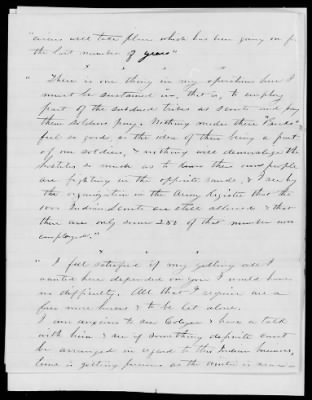 "ences will take place which has been going on for
the last number of years"
" There is one thing in my operations here I
must be sustained in, that is, to employ
part of the subdued tribes as scouts and pay
them soldiers pay. Nothing makes these
feel so good as the idea of their being a part
of our soldiers, & nothing will demoralize the
hostiles so much as to know their own people
are fighting in the opposite ranks, & I see by
the organization in the Army Register that the
1000 Indian Scouts are still allowed & that
there are only some 288 of that number now
employed."
" I feel satisfied if my getting what I
wanted here depended on you I would have
no difficulty. All that I require are a
few more horses & to be let alone.
I am anxious to see Colyer & have a talk
with him & see if something definite cannot
be arranged in regard to this Indian business,
time is getting precious as the winter is near